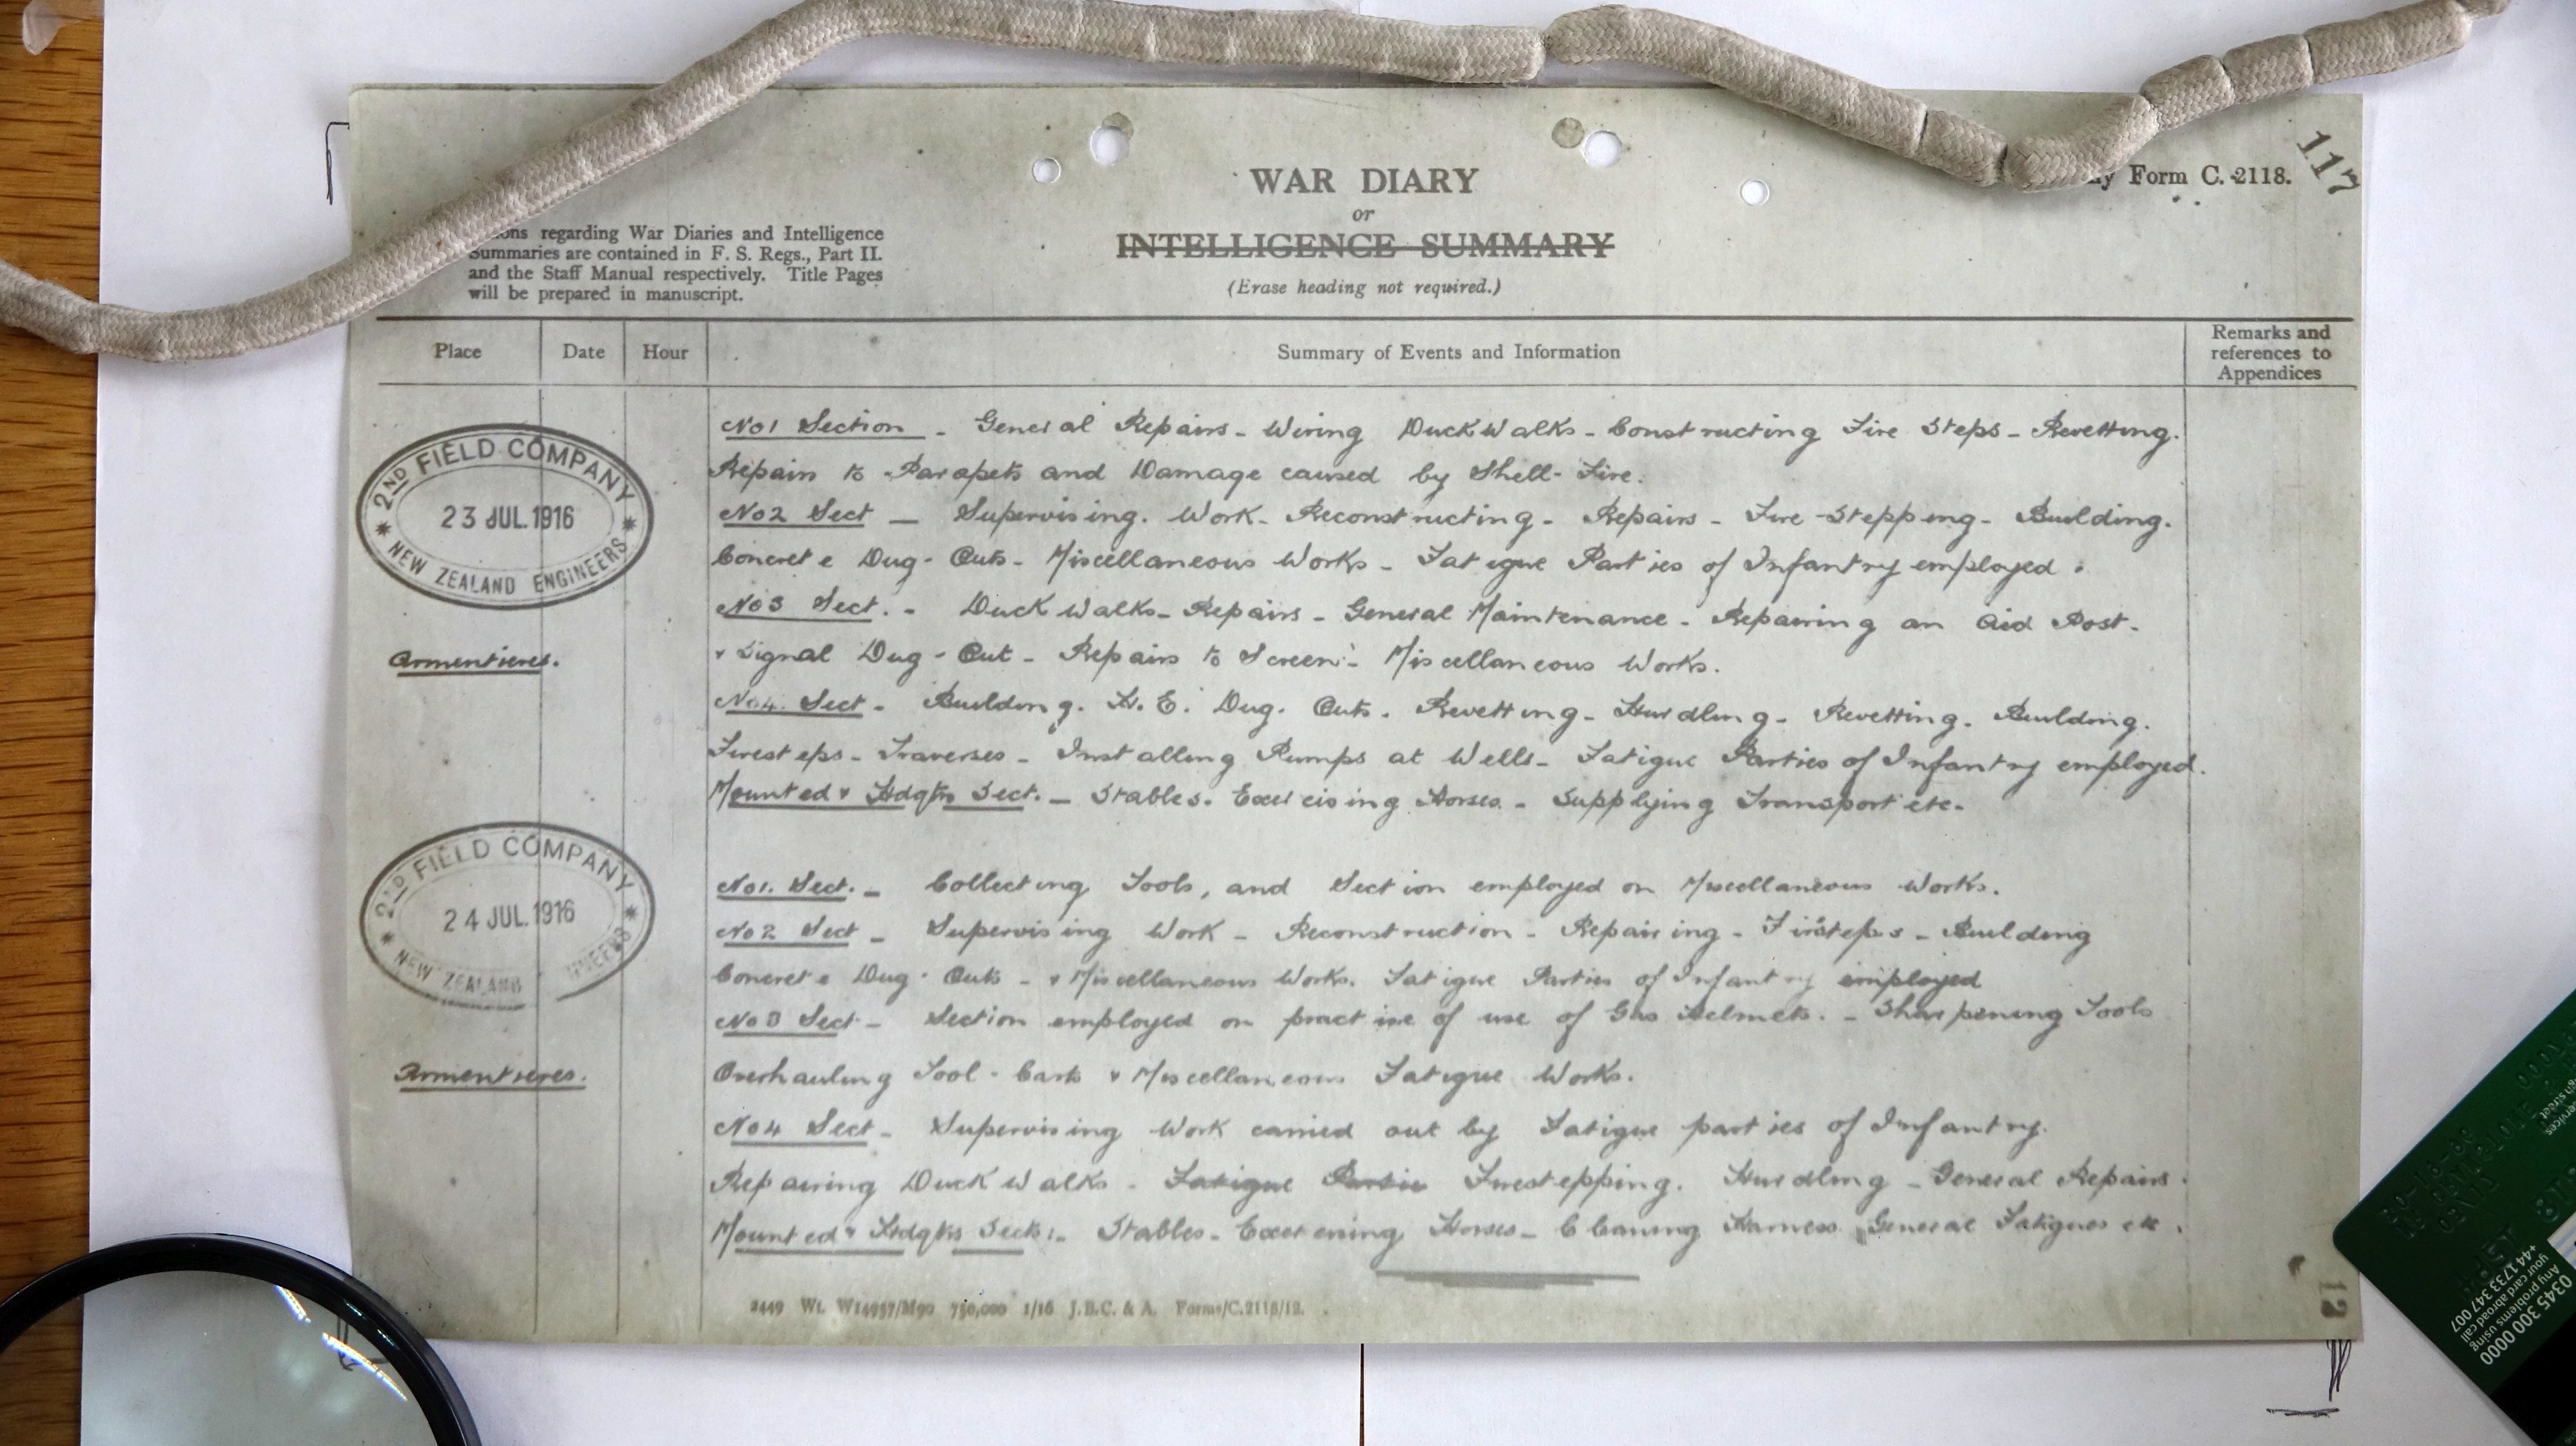 117
WAR DIARY
Form C. 2118.
or
INTELLIGENCE SUMMARY
(Erase heading not required.)
regarding War Diaries and Intelligence
Summaries are contained in F. S. Regs., Part II.
and the Staff Manual respectively. Title Pages
will be prepared in manuscript.
Place Date Hour Summary of Events and Information Remarks and references to Appendices
2ND FIELD COMPANY
23 JUL. 1916
NEW ZEALAND ENGINEERS
Armentieres.
No1 Section - General Repairs - Wiring Duck Walks - Constructing Fire Steps - Revetting.
Repairs to Parapets and Damage caused by Shell-Fire.
No2 Sect - Supervising. Work - Reconstructing - Repairs - Fire-Stepping - Building.
Concrete Dug-Outs - Miscellaneous Works - Fatigue Parties of Infantry employed.
No3 Sect. - Duck Walks - Repairs - General Maintenance - Repairing an Aid Post -
& Signal Dug-Out - Repairs to Screen - Miscellaneous Works.
No4. Sect - Building. H.E. Dug. Outs. Revetting - Hurdling - Revetting. Building.
Firesteps - Traverses - Installing Pumps at Wells - Fatigue Parties of Infantry employed.
Mounted & Hdqtrs Sect. - Stables. Exercising Horses - Supplying Transport etc.
2ND FIELD COMPANY
24 JUL. 1916
NEW ZEALAND
Armentieres.
No1. Sect. - Collecting Tools, and Section employed on Miscellaneous Works.
No2 Sect - Supervising Work - Reconstruction - Repairing - Firesteps - Building
Concrete Dug-Outs - & Miscellaneous Works. Fatigue Parties of Infantry employed
No3 Sect - Section employed on practise of use of Gas Helmets. - Sharpening Tools
Overhauling Tool-Carts & Miscellaneous Fatigue Works.
No4 Sect - Supervising Work carried out by Fatigue parties of Infantry.
Repairing Duck Walks - Fatigue Parties Firestepping. Hurdling - General Repairs.
Mounted & Hdqtrs Sect: - Stables - Exercising Horses - Cleaning Harness General Fatigues etc.
2449 Wt. W14957/M90 750,000 1/16 J.B.C. & A. Forms/C.2118/12.
12
0345 300 0000
Any problems using
your card abroad call
+44 1733 347 007